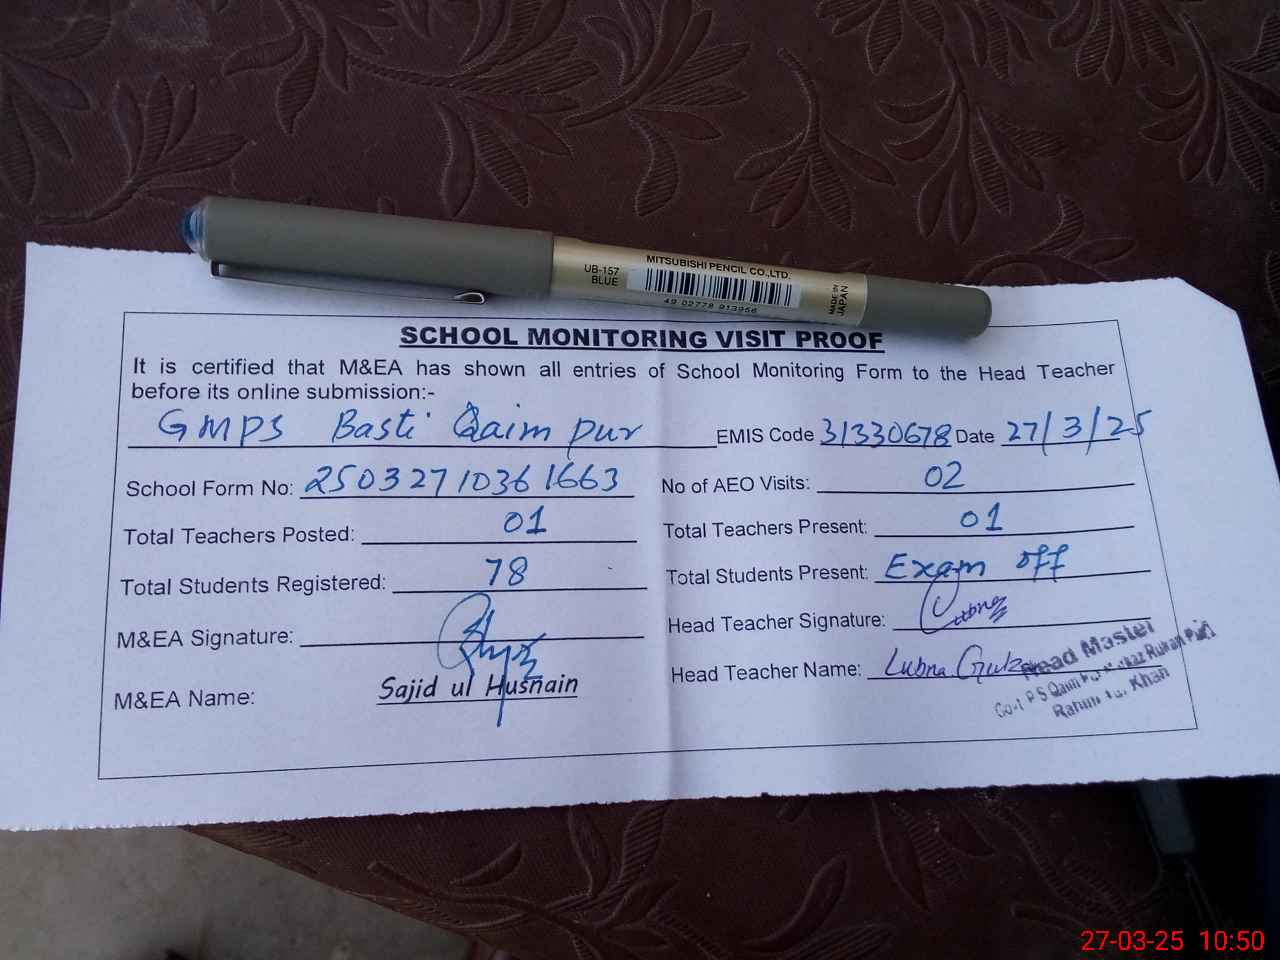 MITSUBISHI PENCIL CO.,LTD.
UB-157
BLUE
49 02778 913956
MADE IN
JAPAN
SCHOOL MONITORING VISIT PROOF
It is certified that M&EA has shown all entries of School Monitoring Form to the Head Teacher
before its online submission:-
GMPS Basti Qaim pur EMIS Code 31330678 Date 27/3/25
School Form No: 25032710361663 No of AEO Visits: 02
Total Teachers Posted: 01 Total Teachers Present: 01
Total Students Registered: 78 Total Students Present: Exam off
M&EA Signature: Head Teacher Signature: Lubna
M&EA Name: Sajid ul Husnain Head Teacher Name: Lubna
Head Master
Qaim
Rahim Yar Khan
27-03-25 10:50